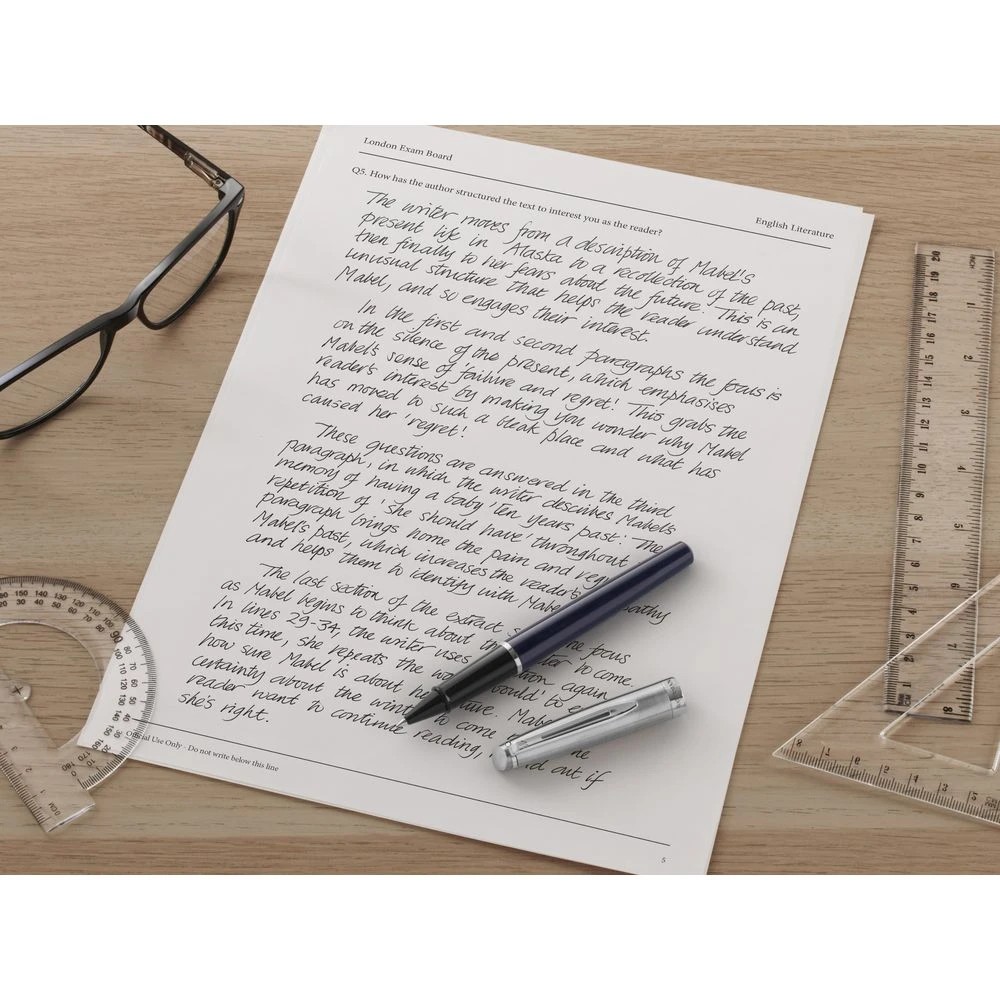 London Exam Board
English Literature
Q5. How has the author structured the text to interest you as the reader?
The writer moves from a description of Mabel's
present life in Alaska to a recollection of the past,
then finally to her fears about the future. This is an
unusual structure that helps the reader understand
Mabel, and so engages their interest.
In the first and second paragraphs the focus is
on the silence of the present, which emphasises
Mabel's sense of 'failure and regret'. This grabs the
reader's interest by making you wonder why Mabel
has moved to such a bleak place and what has
caused her 'regret'.
These questions are answered in the third
paragraph, in which the writer describes Mabel's
memory of having a baby 'ten years past'. The
repetition of 'she should have' throughout
paragraph brings home the pain and
Mabel's past, which increases the reader's
and helps them to identify with
The last section of the extract focus
as Mabel begins to think about to come.
In lines 29-34, the writer uses again
this time, she repeats the would' to
how sure Mabel is about
certainty about the to come
reader want to continue reading, out if
she's right.
Official Use Only - Do not write below this line
5
INCH
1 2 3 4 5 6 7 8 9 10 11 12 13 14 15 16 17 18 19 20
1 2 3 4 5 6 7 8